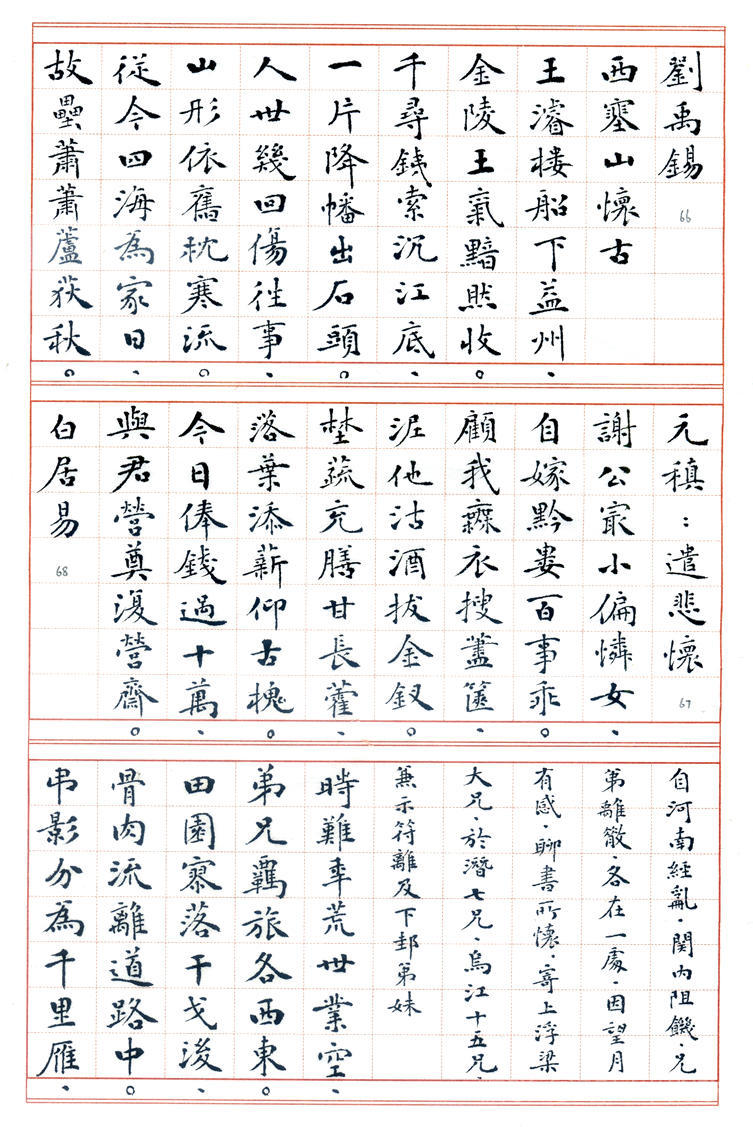 劉禹錫 66
西塞山懷古
王濬楼船下益州、
金陵王氣黯然收。
千尋鉄索沉江底、
一片降幡出石頭。
人世幾回傷往事、
山形依舊枕寒流。
從今四海為家日、
故壘蕭蕭蘆荻秋。
元稹：遣悲懷 67
謝公最小偏憐女、
自嫁黔婁百事乖。
顧我無衣搜藎篋、
泥他沽酒拔金釵。
埜蔬充膳甘長藿、
落葉添薪仰古槐。
今日俸錢過十萬、
與君營奠復營齋。
白居易 68
自河南經亂、関內阻饑、兄
弟離散、各在一處、因望月
有感、聊書所懷、寄上浮梁
大兄、於潛七兄、烏江十五兄、
兼示符離及下邽弟妹
時難年荒世業空、
弟兄羈旅各西東。
田園寥落干戈後、
骨肉流離道路中。
弔影分為千里雁、